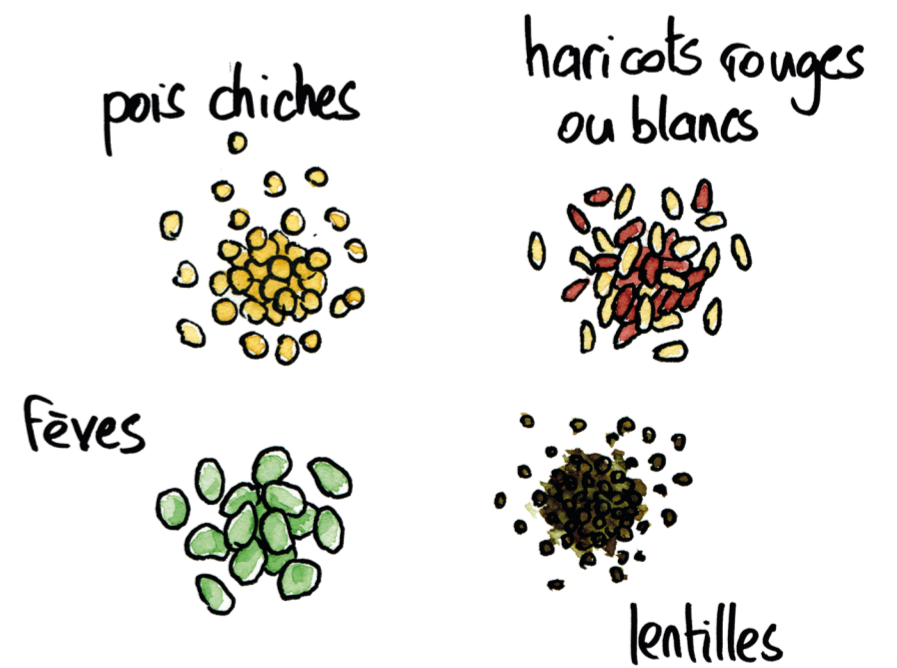 pois chiches
haricots rouges
ou blancs
fèves
lentilles